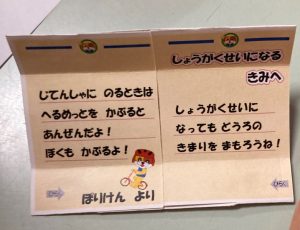 しょうがくせいになる
きみへ
しょうがくせいに
なっても どうろの
きまりを まもろうね!
ひらく
じてんしゃに のるときは
へるめっとを かぶると
あんぜんだよ!
ぼくも かぶるよ!
ぽりけん より